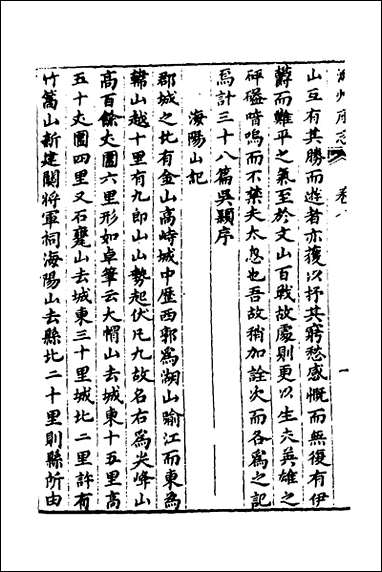 潮州府志 卷八 一
山互有其勝而遊者亦復以抒其窮愁感慨而無復有伊
蔚而難平之氣至於文山百戰故處則更以生夫英雄之
砰磕喑嗚而不禁夫太息也吾故稍加詮次而各為之記
爲計三十八篇吳穎序
海陽山記
郡城之北有金山高峙城中歷西郭爲湖山喻江而東爲
韓山越十里有九郎山山勢起伏凡九故名右爲尖峰山
高百餘丈圍六里形如卓筆云大帽山去城東十五里高
五十丈圍四里又石甕山去城東三十里城北二里許有
竹篙山新建關將軍祠海陽山去縣北二十里則縣所由